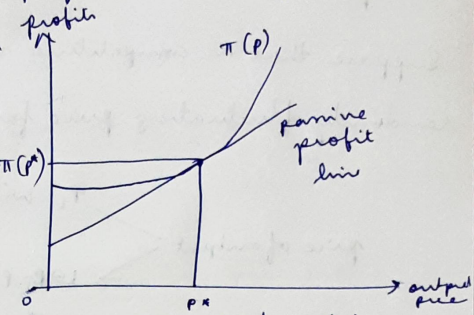 profits
π(p)
passive
profit
line
π(p*)
0
p*
output
price